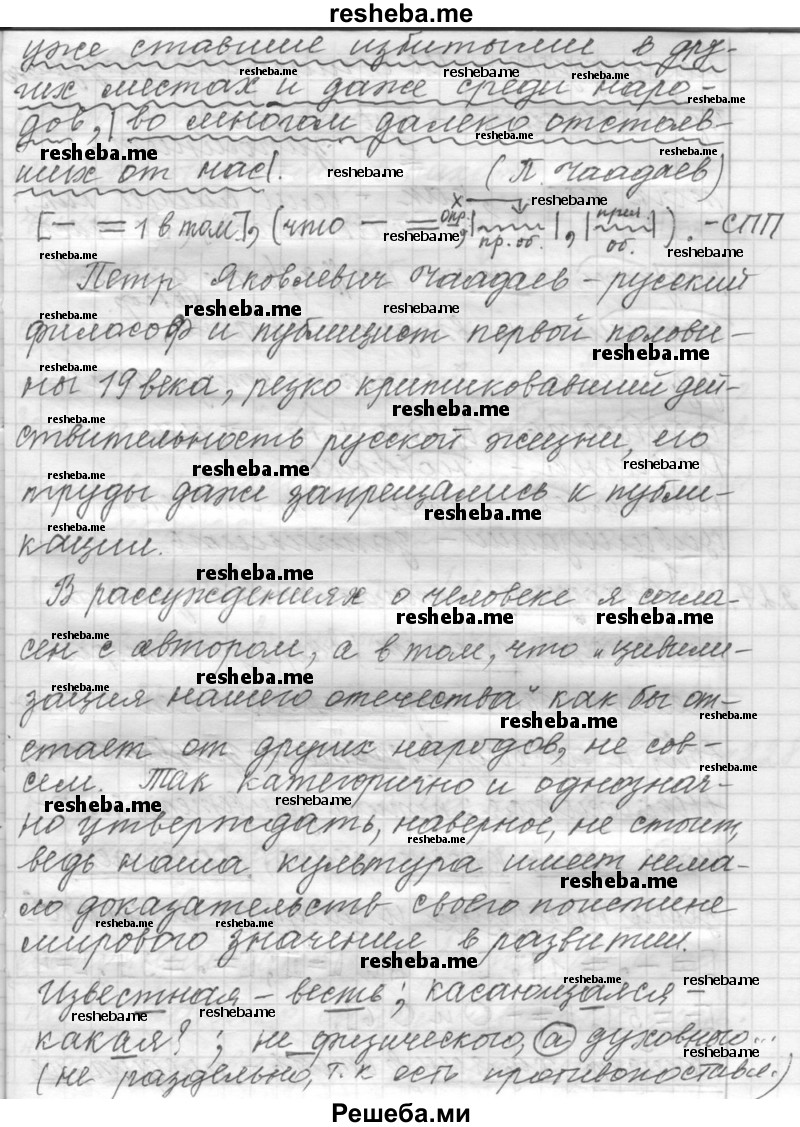 resheba.me
уже ставшие избитыми в дру-
гих местах и даже среди наро-
дов, | во многом далеко отстав-
ших от нас|.
(П. Чаадаев)
[— = 1 в том], (что — = опр., | пр. об. |, | прич. об. | ). - СПП
Петр Яковлевич Чаадаев - русский
философ и публицист первой полови-
ны 19 века, резко критиковавший дей-
ствительность русской жизни, его
труды даже запрещались к публи-
кации.
В рассуждениях о человеке я согла-
сен с автором, а в том, что „цивили-
зация нашего отечества" как бы от-
стает от других народов, не сов-
сем. Так категорично и однознач-
но утверждать, наверное, не стоит,
ведь наша культура имеет нема-
ло доказательств своего поистине
мирового значения в развитии.
Известная - весть; касающаяся -
какая? ; не физического, а духовного...
(не раздельно, т. к есть противопоставл.)
Решеба.ми